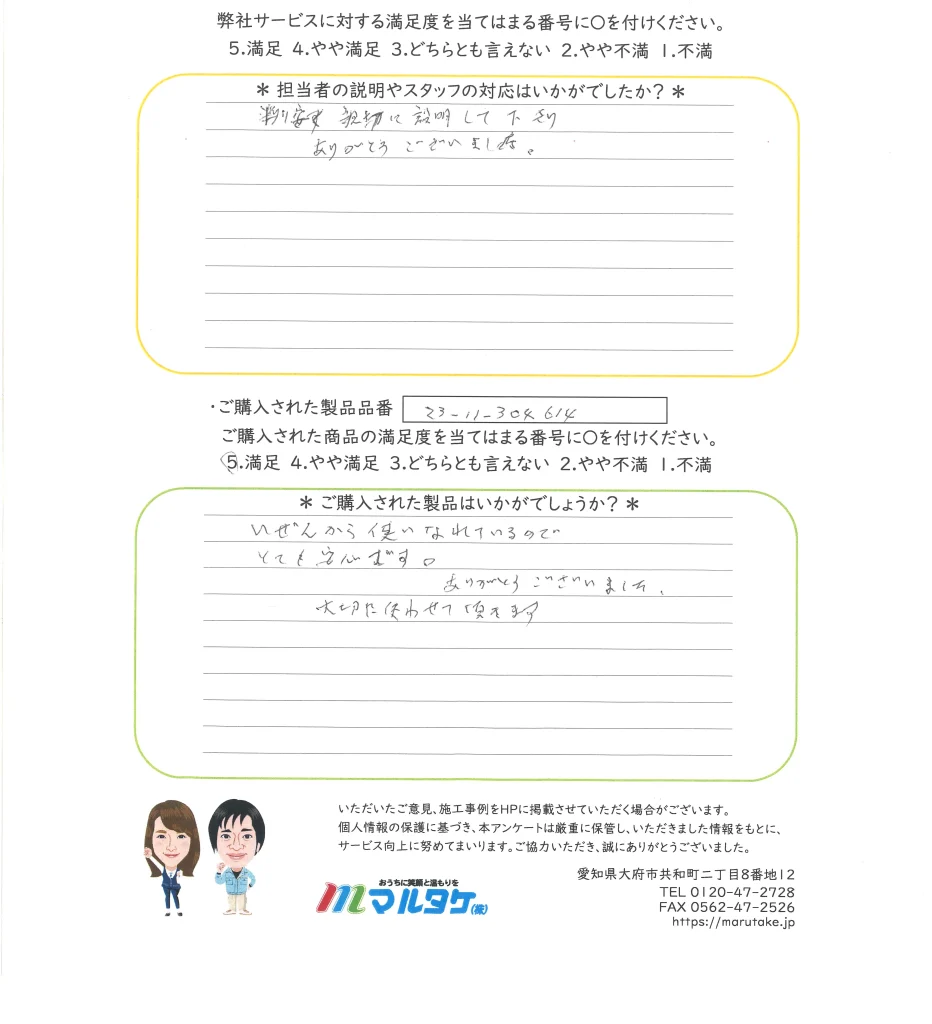 弊社サービスに対する満足度を当てはまる番号に〇を付けください。
5.満足 4.やや満足 3.どちらとも言えない 2.やや不満 1.不満
＊ 担当者の説明やスタッフの対応はいかがでしたか？ ＊
親切に説明して下さり
ありがとうございました。
・ご購入された製品品番 23-11-304614
ご購入された商品の満足度を当てはまる番号に〇を付けください。
5.満足 4.やや満足 3.どちらとも言えない 2.やや不満 1.不満
＊ ご購入された製品はいかがでしょうか？ ＊
いぜんから使いなれているので
とても安心です。
ありがとうございました。
大切に使わせて頂きます
いただいたご意見、施工事例をHPに掲載させていただく場合がございます。
個人情報の保護に基づき、本アンケートは厳重に保管し、いただきました情報をもとに、
サービス向上に努めてまいります。ご協力いただき、誠にありがとうございました。
おうちに笑顔と温もりを
マルタケ(株)
愛知県大府市共和町二丁目8番地12
TEL 0120-47-2728
FAX 0562-47-2526
https://marutake.jp